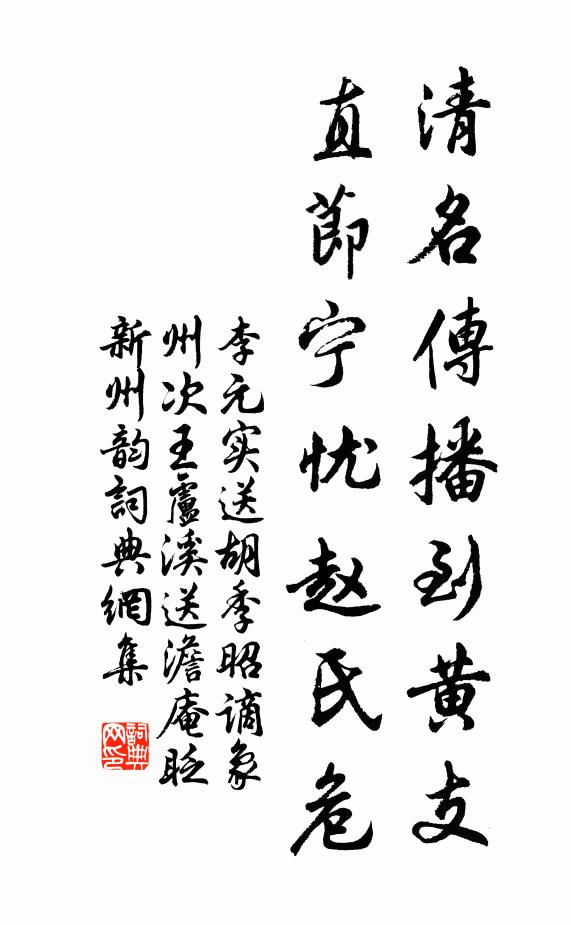 清名傳播到黄支
直節宁忧赵氏危
李元实送胡季昭谪象
州次王盧溪送澹庵贬
新州韵詞典網集
詞典网印